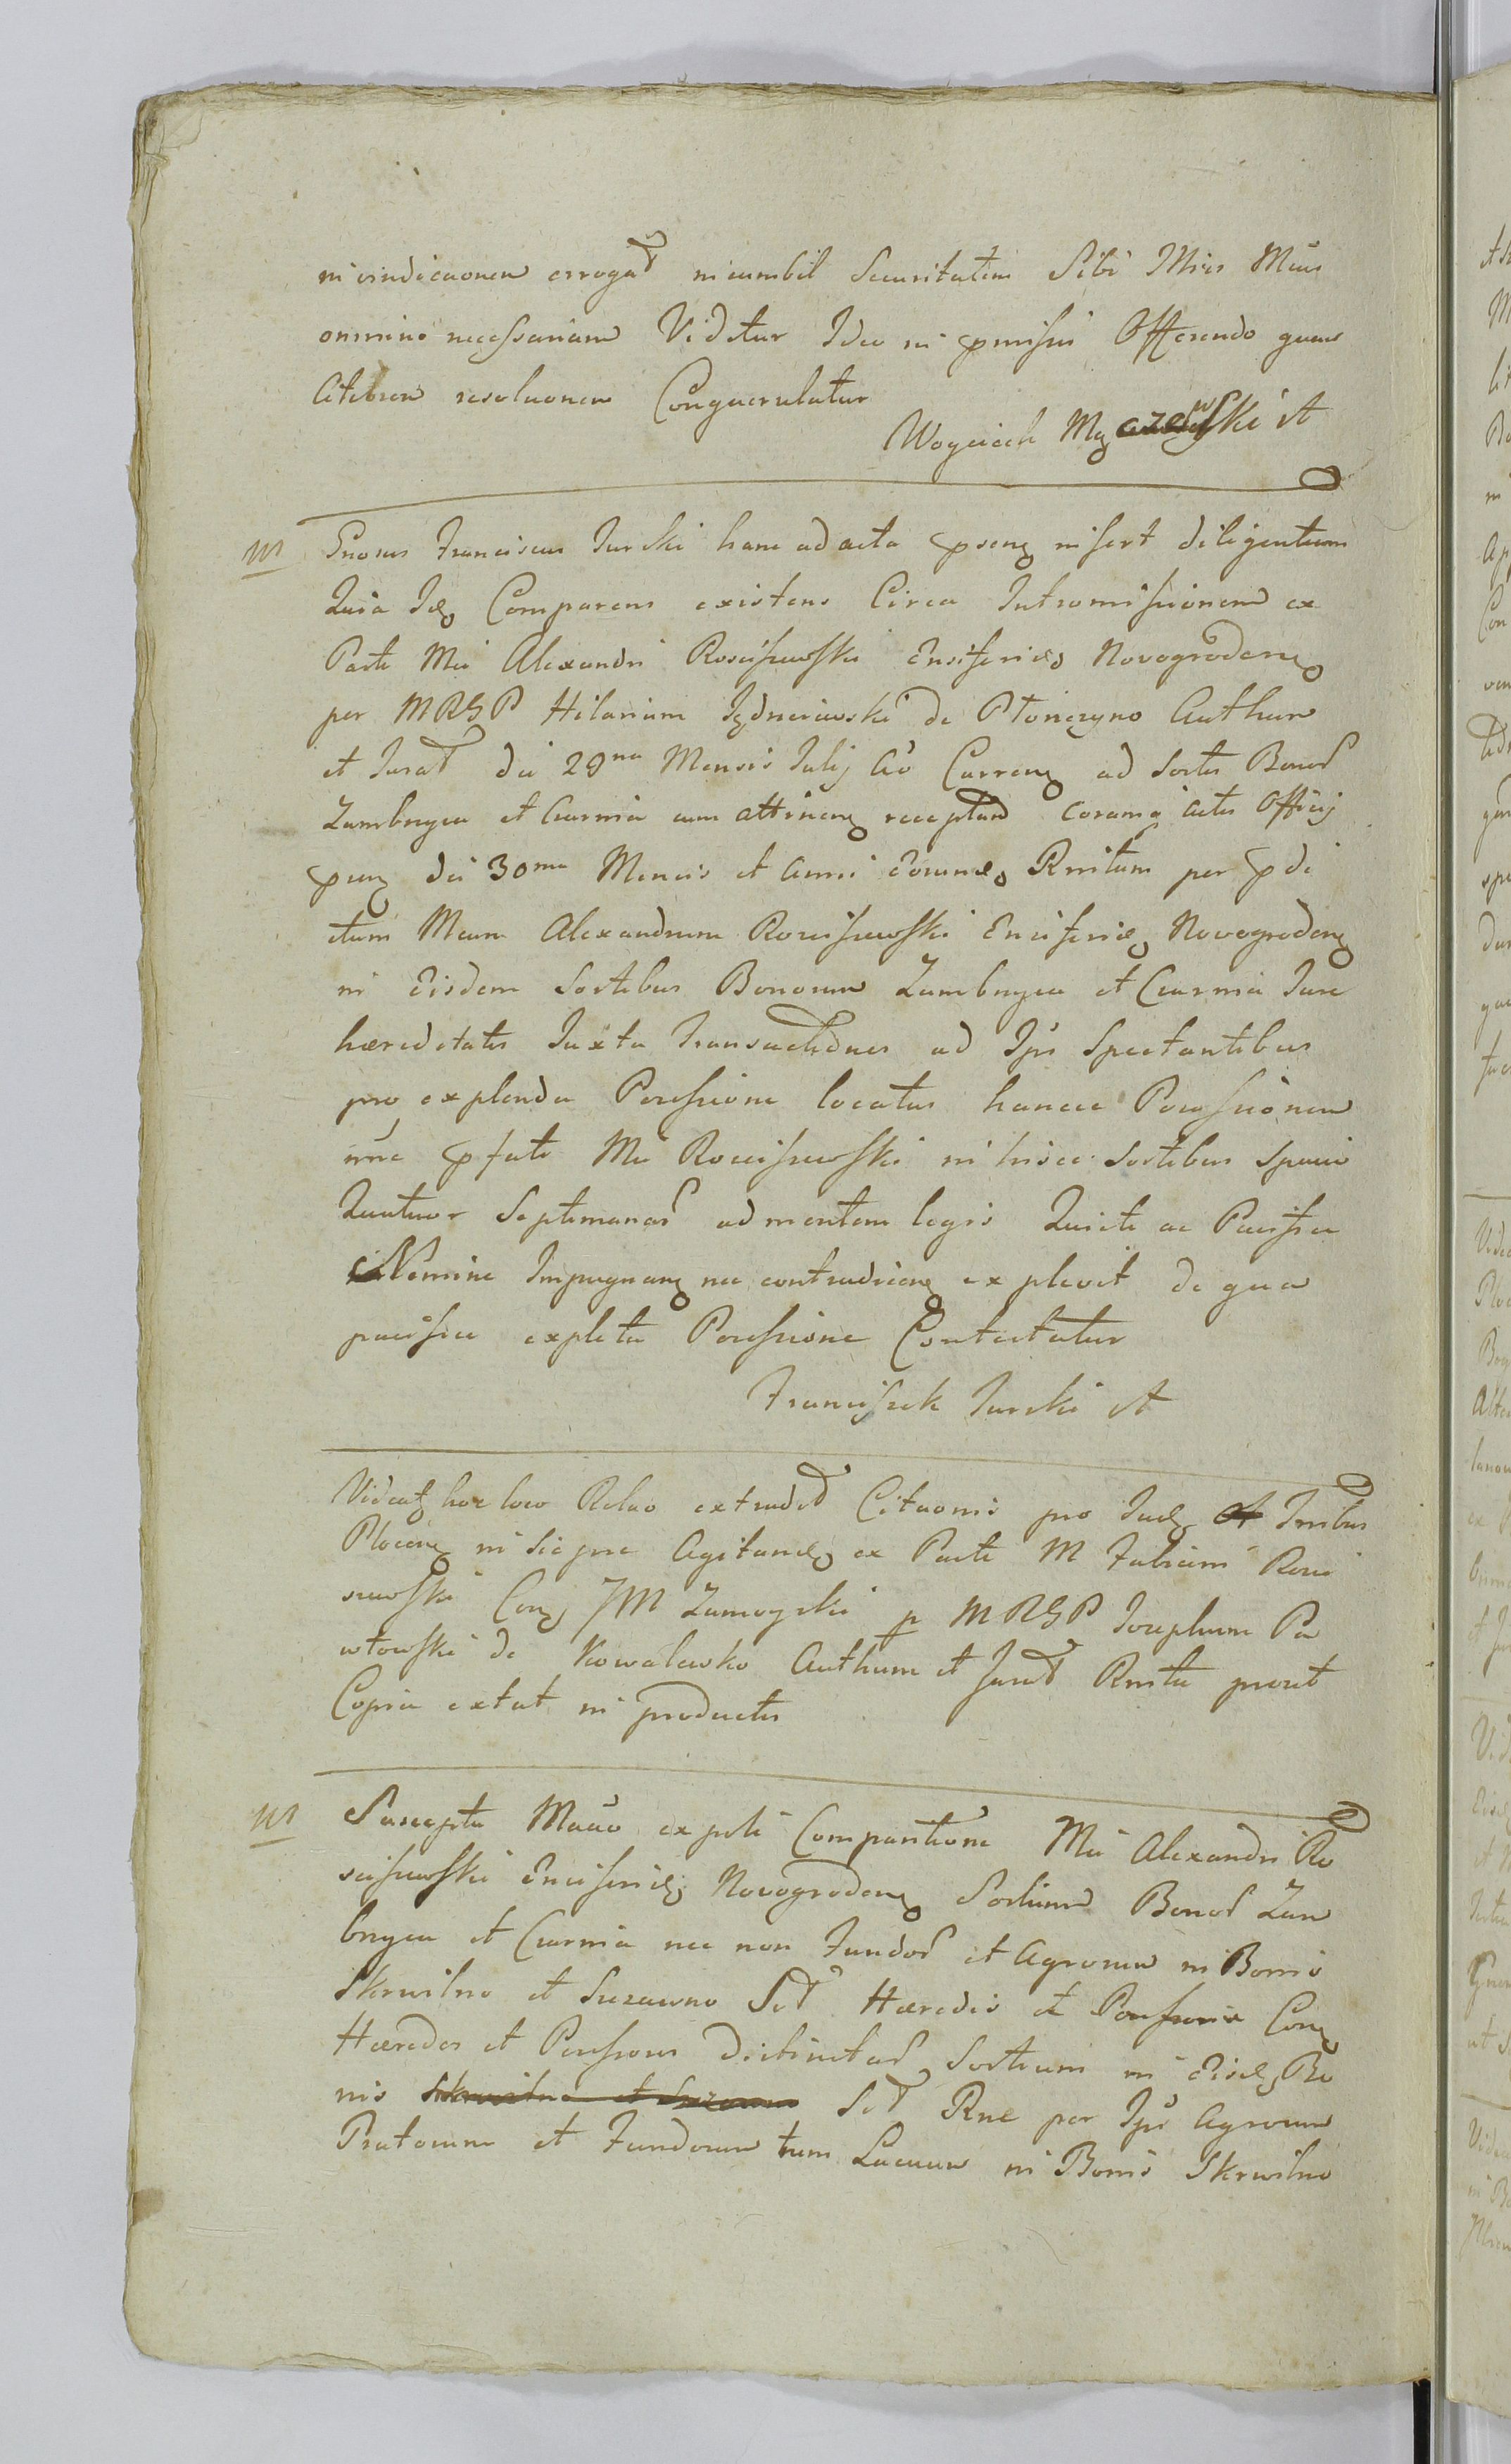 in vindicaonem errogat incumbit Securitatem Sibi Mtis Mcus
omnino necessariam Videtur Ideo in pmissis Offerendo quam
Citebrem resoluonem Conquerulatur
Woyciech Mączewski A
Gnosus Franciscus Turski hanc ad acta psenę infert diligentiam
Quia Ideo Comparens existens Circa Intromissionem ex
Parte Mci Alexandri Rosciszewski Ensiferidę Novogrodenę
per MRGP Hilarium Jędrzeiewski de Płonczyno Authum
et Jurat die 29na Mensis Julij Ao Currenę ad Sortes Bonor
Zambrzyca et Czarnia cum attinenę receptand coramq actis Officij
psenę die 30ma Mensis et Anni eorundę Rnitam per pdi
ctum Mcum Alexandrum Rosciszewski Ensiferidę Novogrodenę
in Eisdem Sortibus Bonorum Zambrzyca et Czarnia Jure
hæreditatis Juxta Transactiones ad Ipsū Spectantibus
pro explenda Possessione locatus hancce Possessionem
nne pfati Mci Rosciszewski in hisce Sortibus Spatio
Quatuor Septimanar ad mentem legis Quiete ac Pacifice
Nemine Impugnanę nec contradicenę explevit de qua
pacifice expleta Possessione Contestatur
Franciszek Turski A
Videatę hoc loco Relao extradit Citaonis pro Judę Tribus
Plocenę in Sierpc Agitandę ex Parte M Fabiani Rosci
szewski Conę JM Zamoyski p MRGP Josephum Pa
włowski de Kowalewko Authum et Jurat Rnita prout
Copia extat in productis
Suscepta Maāo ex psti Comparitione Mci Alexandri Ro
sciszewski Ensiferidę Novogrodenę Sortium Bonor Zam
brzyca et Czarnia nec non Fundor et Agrorum in Bonis
Skrwilno et Szczawno Sit Hæredis et Possessoris Conę
Hæredes et Possessores Distinctar Sortium in Eisdę Bo
nis Skrwilno et Szczawno Sit Rne per Ipsū Agrorum
Pratorum et Fundorum tum Lacuum in Bonis Skrwilno